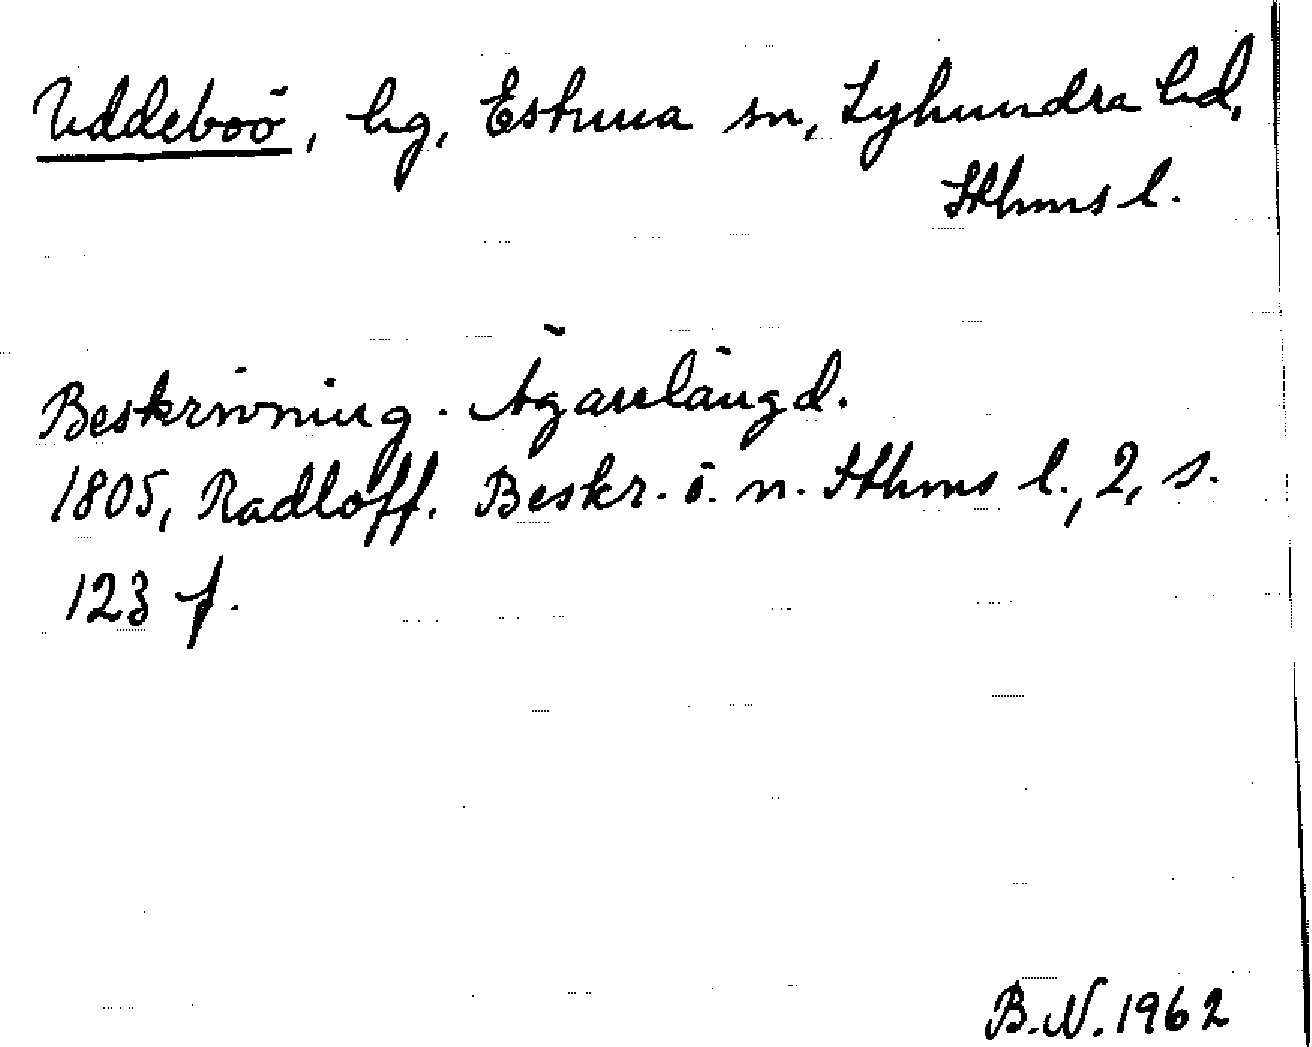 Uddeboö, hg, Estuna sn, Lyhundra hd,
Sthlms l.
Beskrivning. Ägarelängd.
1805, Radloff. Beskr. ö. n. Sthlms l., 2, s.
123 f.
B.N. 1962